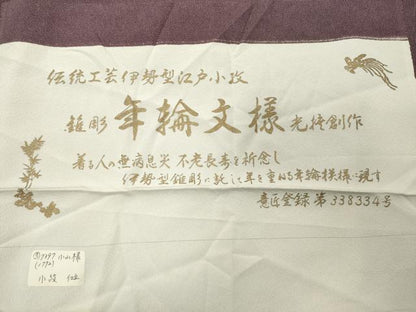 伝統工芸伊勢型江戸小紋
錐彫 年輪文様 光挊創作
着る人の無病息災 不老長寿を祈念し
伊勢型錐彫に託して年を重ねる年輪模様に現す
意匠登録第338334号
小山様
(1792)
小紋 仕立